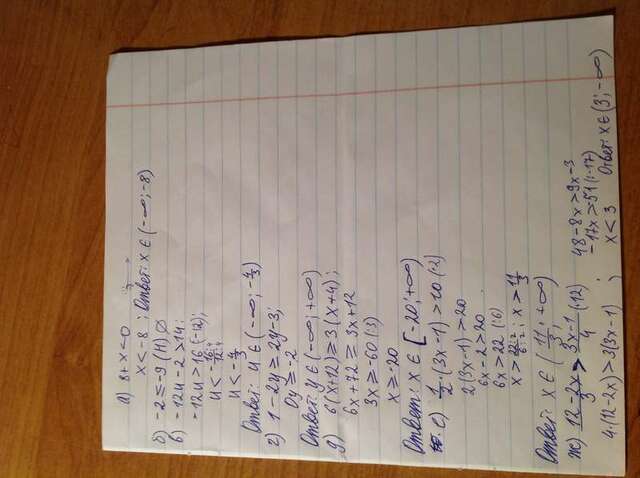 а) 8+x<0
x<-8 ; Ответ: x ∈ (-∞; -8)
б) -2≤-9 (Н) ∅
в) -12u-2>14;
-12u>16 (-12);
u<-16:4/12:4
u<-4/3
Ответ: u ∈ (-∞; -4/3)
г) 1-2y≥2y-3;
0y≥-2
Ответ: y ∈ (-∞; +∞)
д) 6(x+12)≥3(x+4);
6x+72≥3x+12
3x≥-60 (:3)
x≥-20
Ответ: x ∈ [-20; +∞)
е) 1/2·(3x-1)>10 (·2)
2(3x-1)>20
6x-2>20
6x>22 (:6)
x>22:2/6:2; x>11/3
Ответ: x ∈ (11/3; +∞)
ж) 12-2x/3>3x-1/4 (·12)
4·(12-2x)>3(3x-1) ;
48-8x>9x-3
-17x>51 (:-17)
x<3 Ответ: x ∈ (3; -∞)